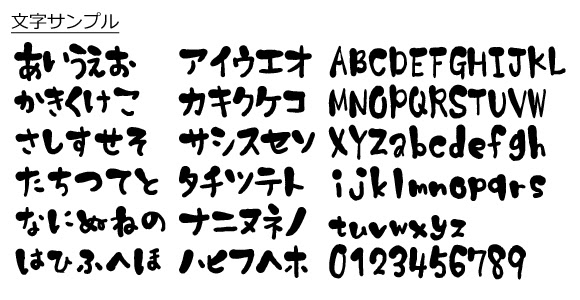 文字サンプル
あいうえお アイウエオ ABCDEFGHIJKL
かきくけこ カキクケコ MNOPQRSTUVW
さしすせそ サシスセソ XYZabcdefgh
たちつてと タチツテト ijklmnopqrs
なにぬねの ナニヌネノ tuvwxyz
はひふへほ ハヒフヘホ 0123456789